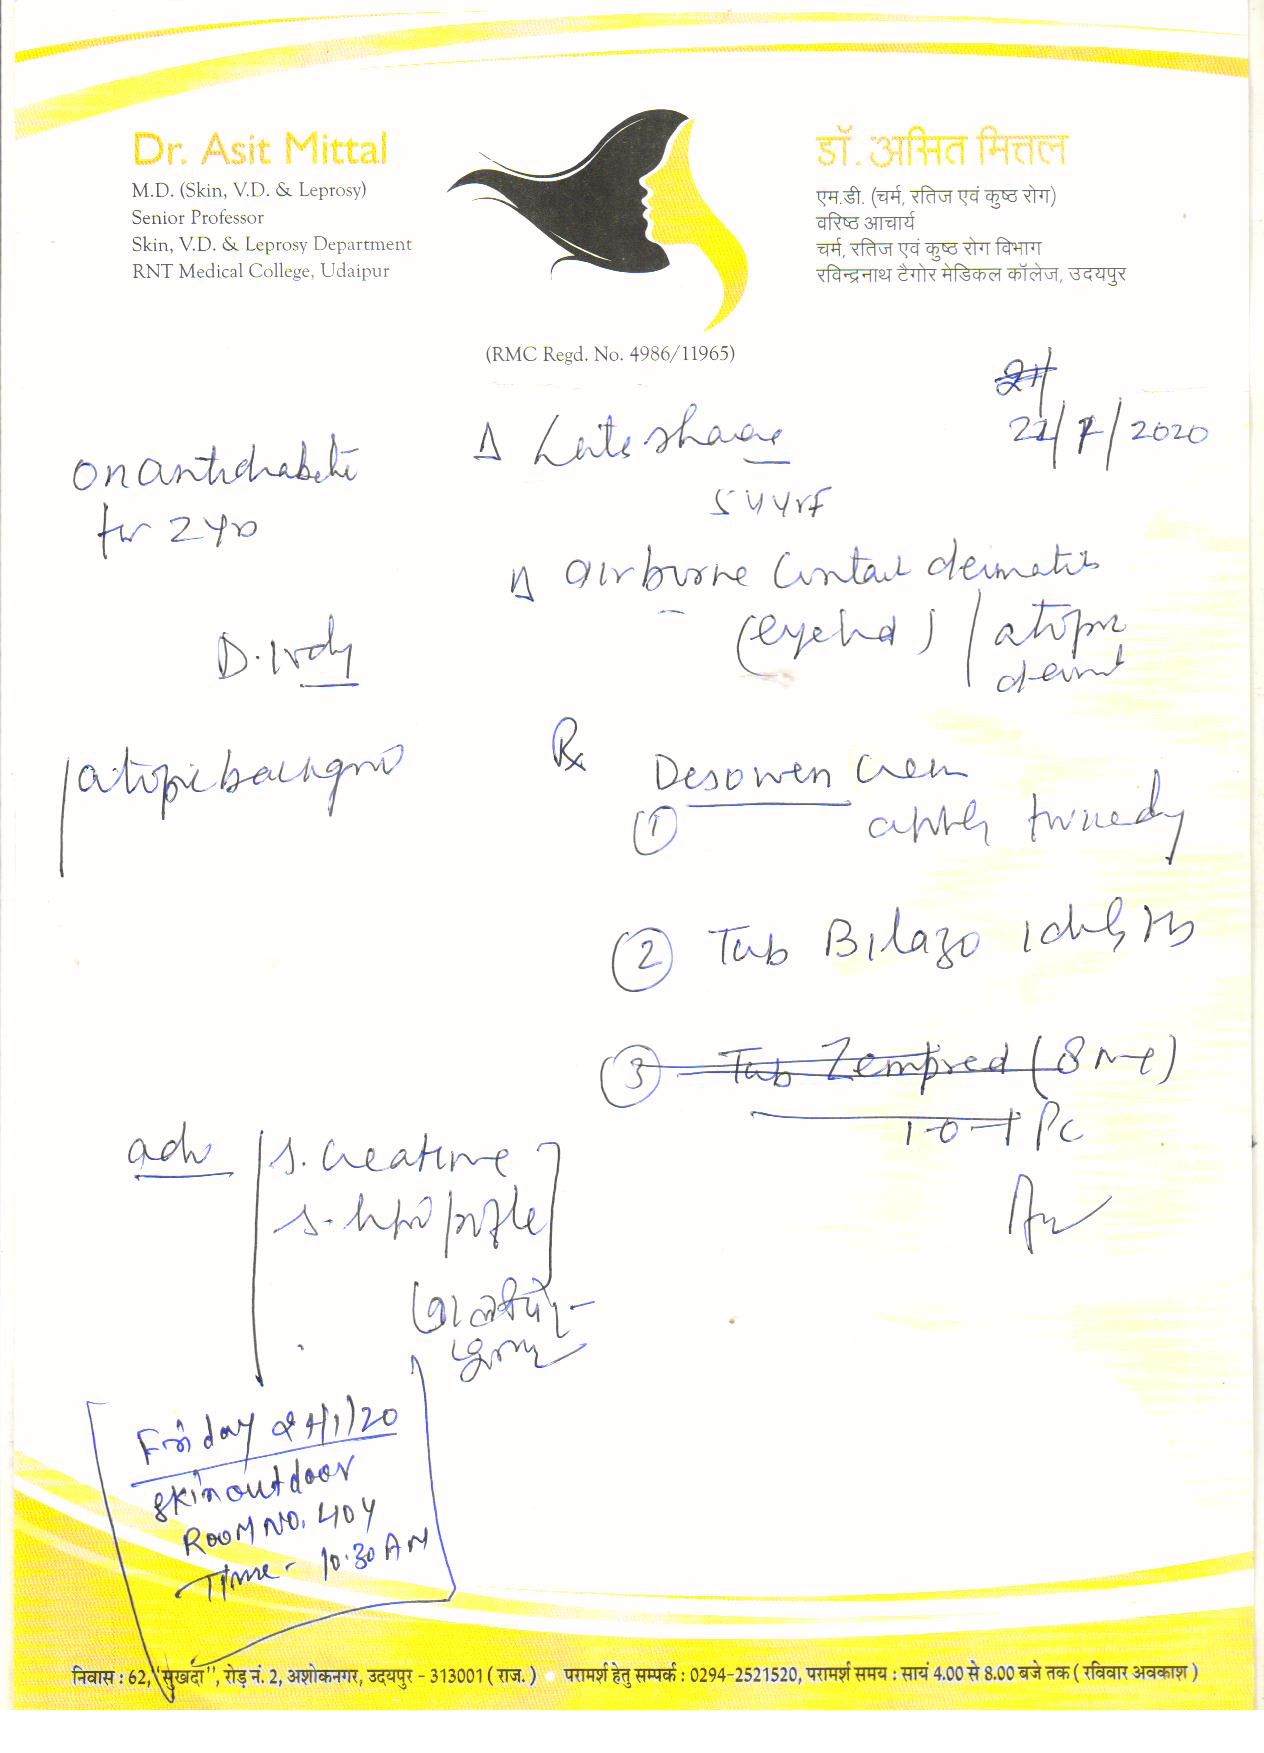 Dr. Asit Mittal
M.D. (Skin, V.D. & Leprosy)
Senior Professor
Skin, V.D. & Leprosy Department
RNT Medical College, Udaipur
डॉ. असित मित्तल
एम.डी. (चर्म, रतिज एवं कुष्ठ रोग)
वरिष्ठ आचार्य
चर्म, रतिज एवं कुष्ठ रोग विभाग
रविन्द्रनाथ टैगोर मेडिकल कॉलेज, उदयपुर
(RMC Regd. No. 4986/11965)
/2020
on antidiabetic
for 2 yrs
airborne contact dermatitis
(eyelid) / atopic
dermt
atopic backgrod
Rx
Desowen Cream
① apply
② Tab Bilazo 1 daily
③ Tab Zempred (8 mg)
1-0-1 PC
adv
S. creatine
S. lipid profile
Friday 24/1/20
skin outdoor
ROOM NO. 404
Time - 10.30 AM
निवास : 62, "सुखदा", रोड़ नं. 2, अशोकनगर, उदयपुर - 313001 ( राज. ) • परामर्श हेतु सम्पर्क : 0294-2521520, परामर्श समय : सायं 4.00 से 8.00 बजे तक ( रविवार अवकाश )